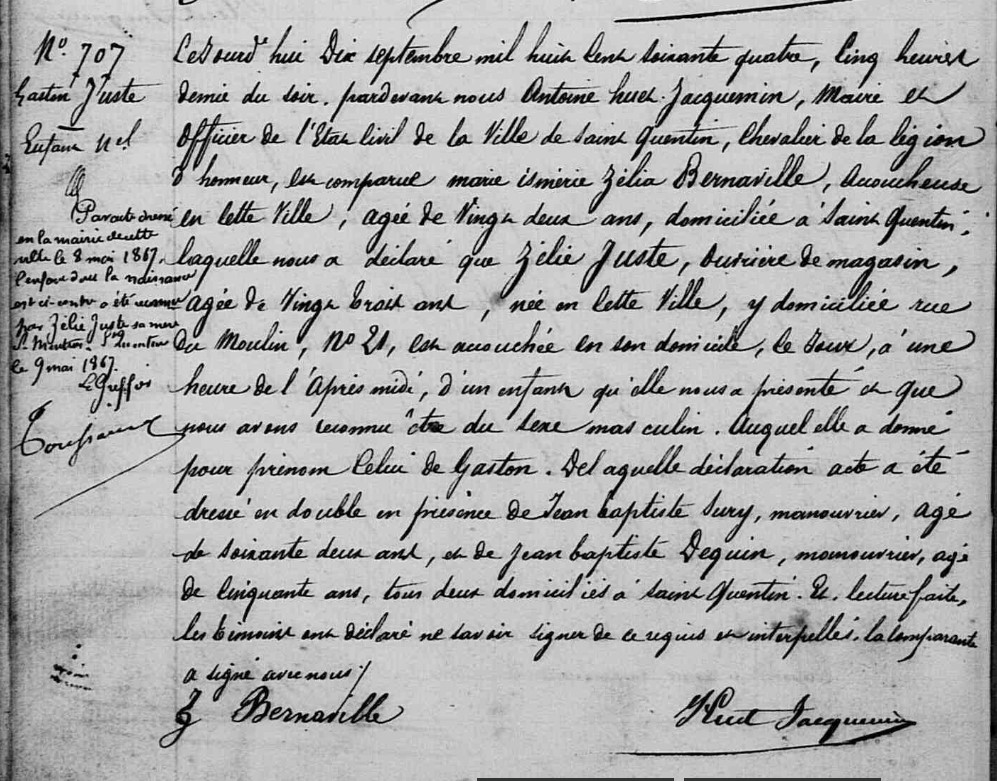 N° 707
Gaston Juste
Enfant n.el
Par acte dressé
en la mairie de cette
ville le 8 mai 1867,
l'enfant dont la naissance
est ci-contre a été reconnu
par Zélie Juste sa mère
St Quentin
le 9 mai 1867.
Le Greffier
Cejourd'hui Dix septembre mil huit Cent soixante quatre, Cinq heures
demie du soir. pardevant nous Antoine huet-Jacquemin, Maire et
Officier de l'Etat Civil de la Ville de Saint Quentin, Chevalier de la légion
d'honneur, est comparue marie ismérie Zélia Bernaville, Accoucheuse
en cette Ville, agée de Vingt deux ans, domiciliée à Saint Quentin;
laquelle nous a déclaré que Zélie Juste, Ouvrière de magasin,
agée de Vingt trois ans, née en cette Ville, y domiciliée rue
du Moulin, N° 21, est accouchée en son domicile, ce Jour, à une
heure de l'Après midi, d'un enfant qu'elle nous a présenté et que
nous avons reconnu être du sexe masculin. Auquel elle a donné
pour prénom Celui de Gaston. De laquelle déclaration acte a été
dressé en double en présence de Jean baptiste Sury, manouvrier, agé
de soixante deux ans, et de Jean baptiste Dequin, manouvrier, agé
de Cinquante ans, tous deux domiciliés à saint Quentin. Et, lecture faite,
les témoins ont déclaré ne savoir signer de ce requis et interpellés. la Comparante
a signé avec nous /
Z Bernaville
Huet Jacquemin